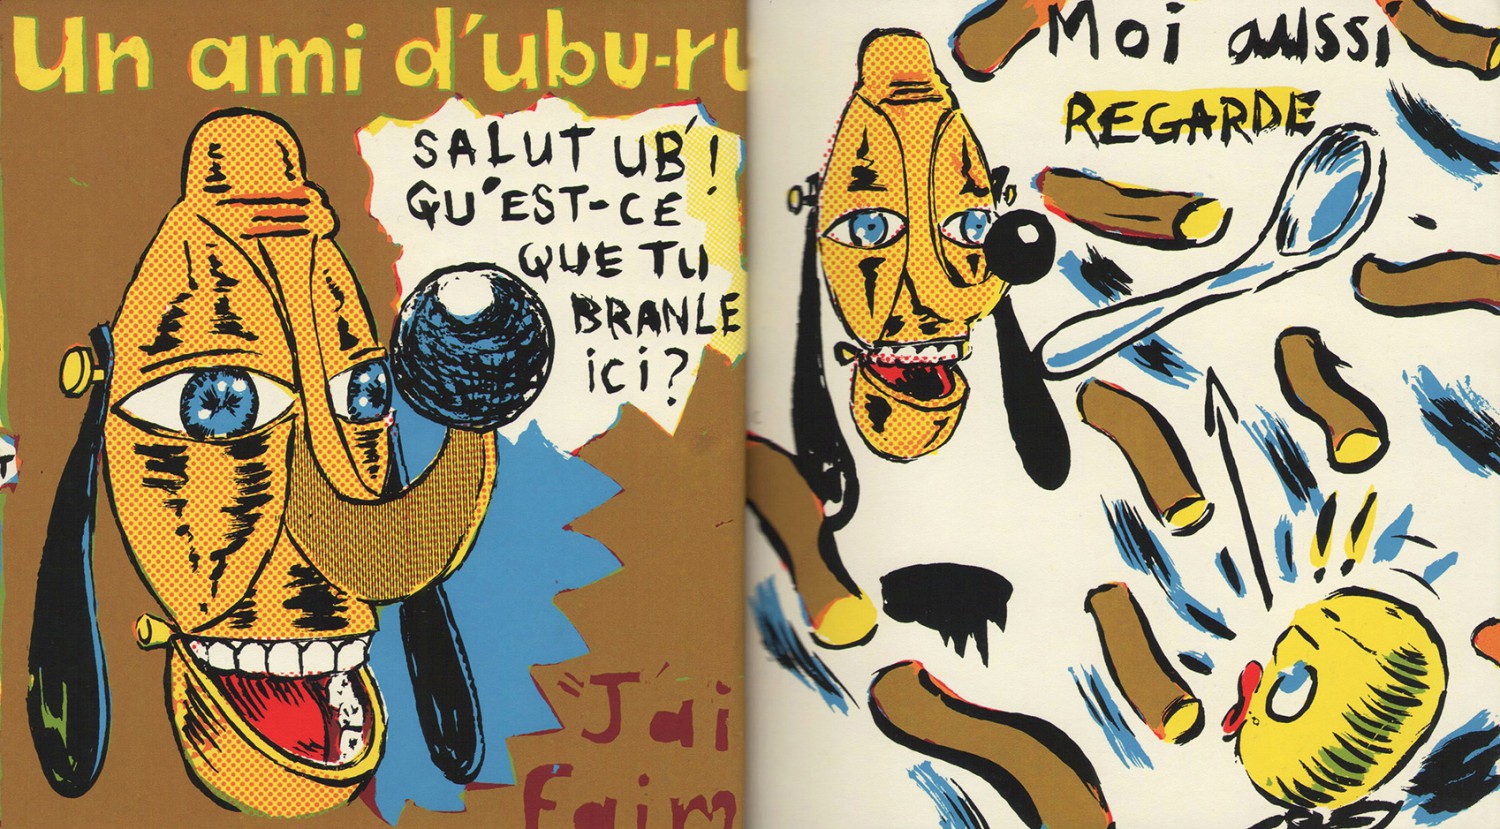 Un ami d'ubu-ru
SALUT UB'!
QU'EST-CE
QUE TU
BRANLE
ici?
"J'ai
faim
Moi aussi
REGARDE